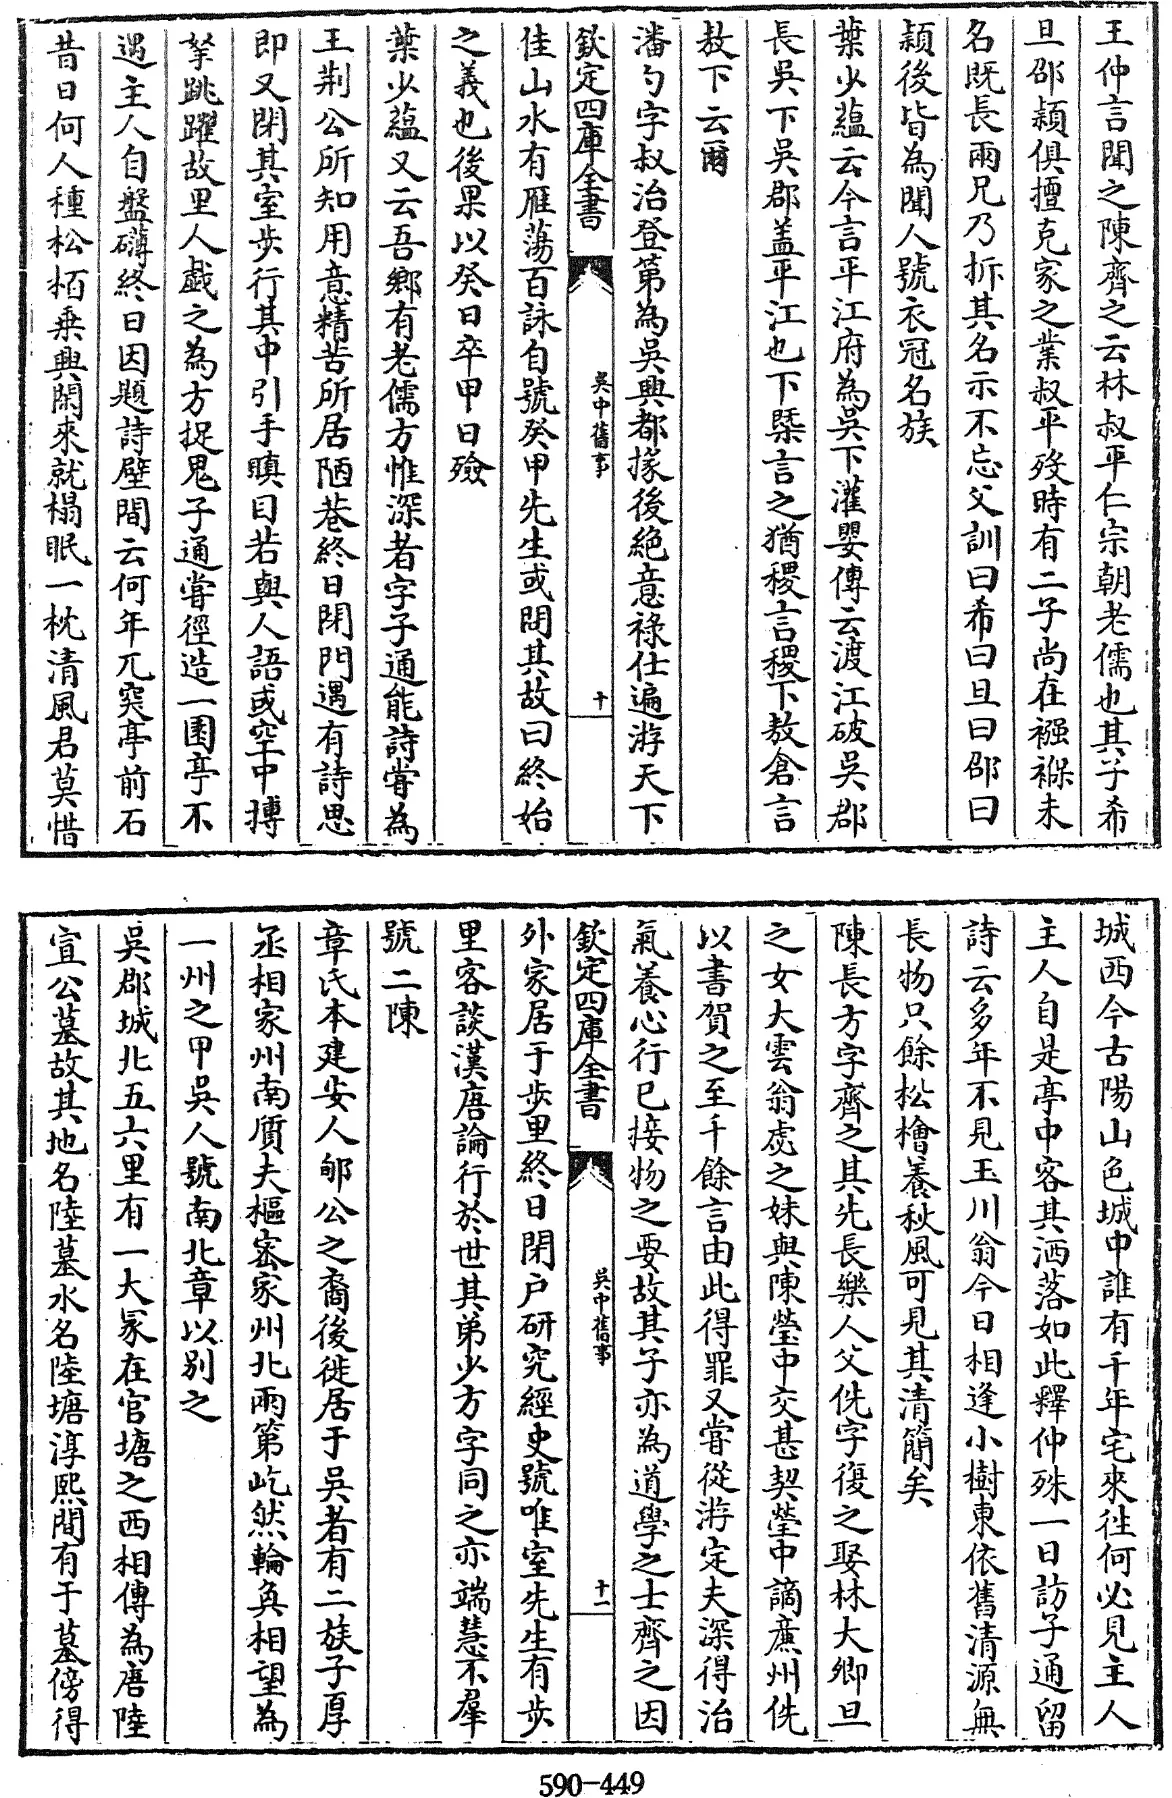 王仲言聞之陳齊之云林叔平仁宗朝老儒也其子希
旦邵穎俱擅克家之業叔平歿時有二子尚在襁褓未
名既長兩兄乃拆其名示不忘父訓曰希曰旦曰邵曰
穎後皆為聞人號衣冠名族
葉少蘊云今言平江府為吳下灌嬰傳云渡江破吳郡
長吳下吳郡蓋平江也下槩言之猶稷言稷下敖倉言
敖下云爾
潘勺字叔治登第為吳興都掾後絶意祿仕遍游天下
欽定四庫全書 吳中舊事 十
佳山水有雁蕩百詠自號癸甲先生或問其故曰終始
之義也後果以癸日卒甲日殮
葉少蘊又云吾鄉有老儒方惟深者字子通能詩嘗為
王荆公所知用意精苦所居陋巷終日閉門遇有詩思
即又閉其室步行其中引手瞋目若與人語或空中搏
拏跳躍故里人戲之為方捉鬼子通嘗徑造一園亭不
遇主人自盤礴終日因題詩壁間云何年兀突亭前石
昔日何人種松栢乗興閑來就榻眠一枕清風君莫惜
城西今古陽山色城中誰有千年宅來徃何必見主人
主人自是亭中客其洒落如此釋仲殊一日訪子通留
詩云多年不見玉川翁今日相逢小樹東依舊清源無
長物只餘松檜養秋風可見其清簡矣
陳長方字齊之其先長樂人父侁字復之娶林大卿旦
之女大雲翁虙之妹與陳瑩中交甚契瑩中謫廉州侁
以書賀之至千餘言由此得罪又嘗從游定夫深得治
氣養心行已接物之要故其子亦為道學之士齊之因
欽定四庫全書 吳中舊事 十一
外家居于步里終日閉户研究經史號唯室先生有步
里客談漢唐論行於世其弟少方字同之亦端慧不羣
號二陳
章氏本建安人郇公之裔後徙居于吳者有二族子厚
丞相家州南質夫樞密家州北兩第屹然輪奐相望為
一州之甲吳人號南北章以别之
吳郡城北五六里有一大冢在官塘之西相傳為唐陸
宣公墓故其地名陸墓水名陸塘淳熙間有于墓傍得
590-449